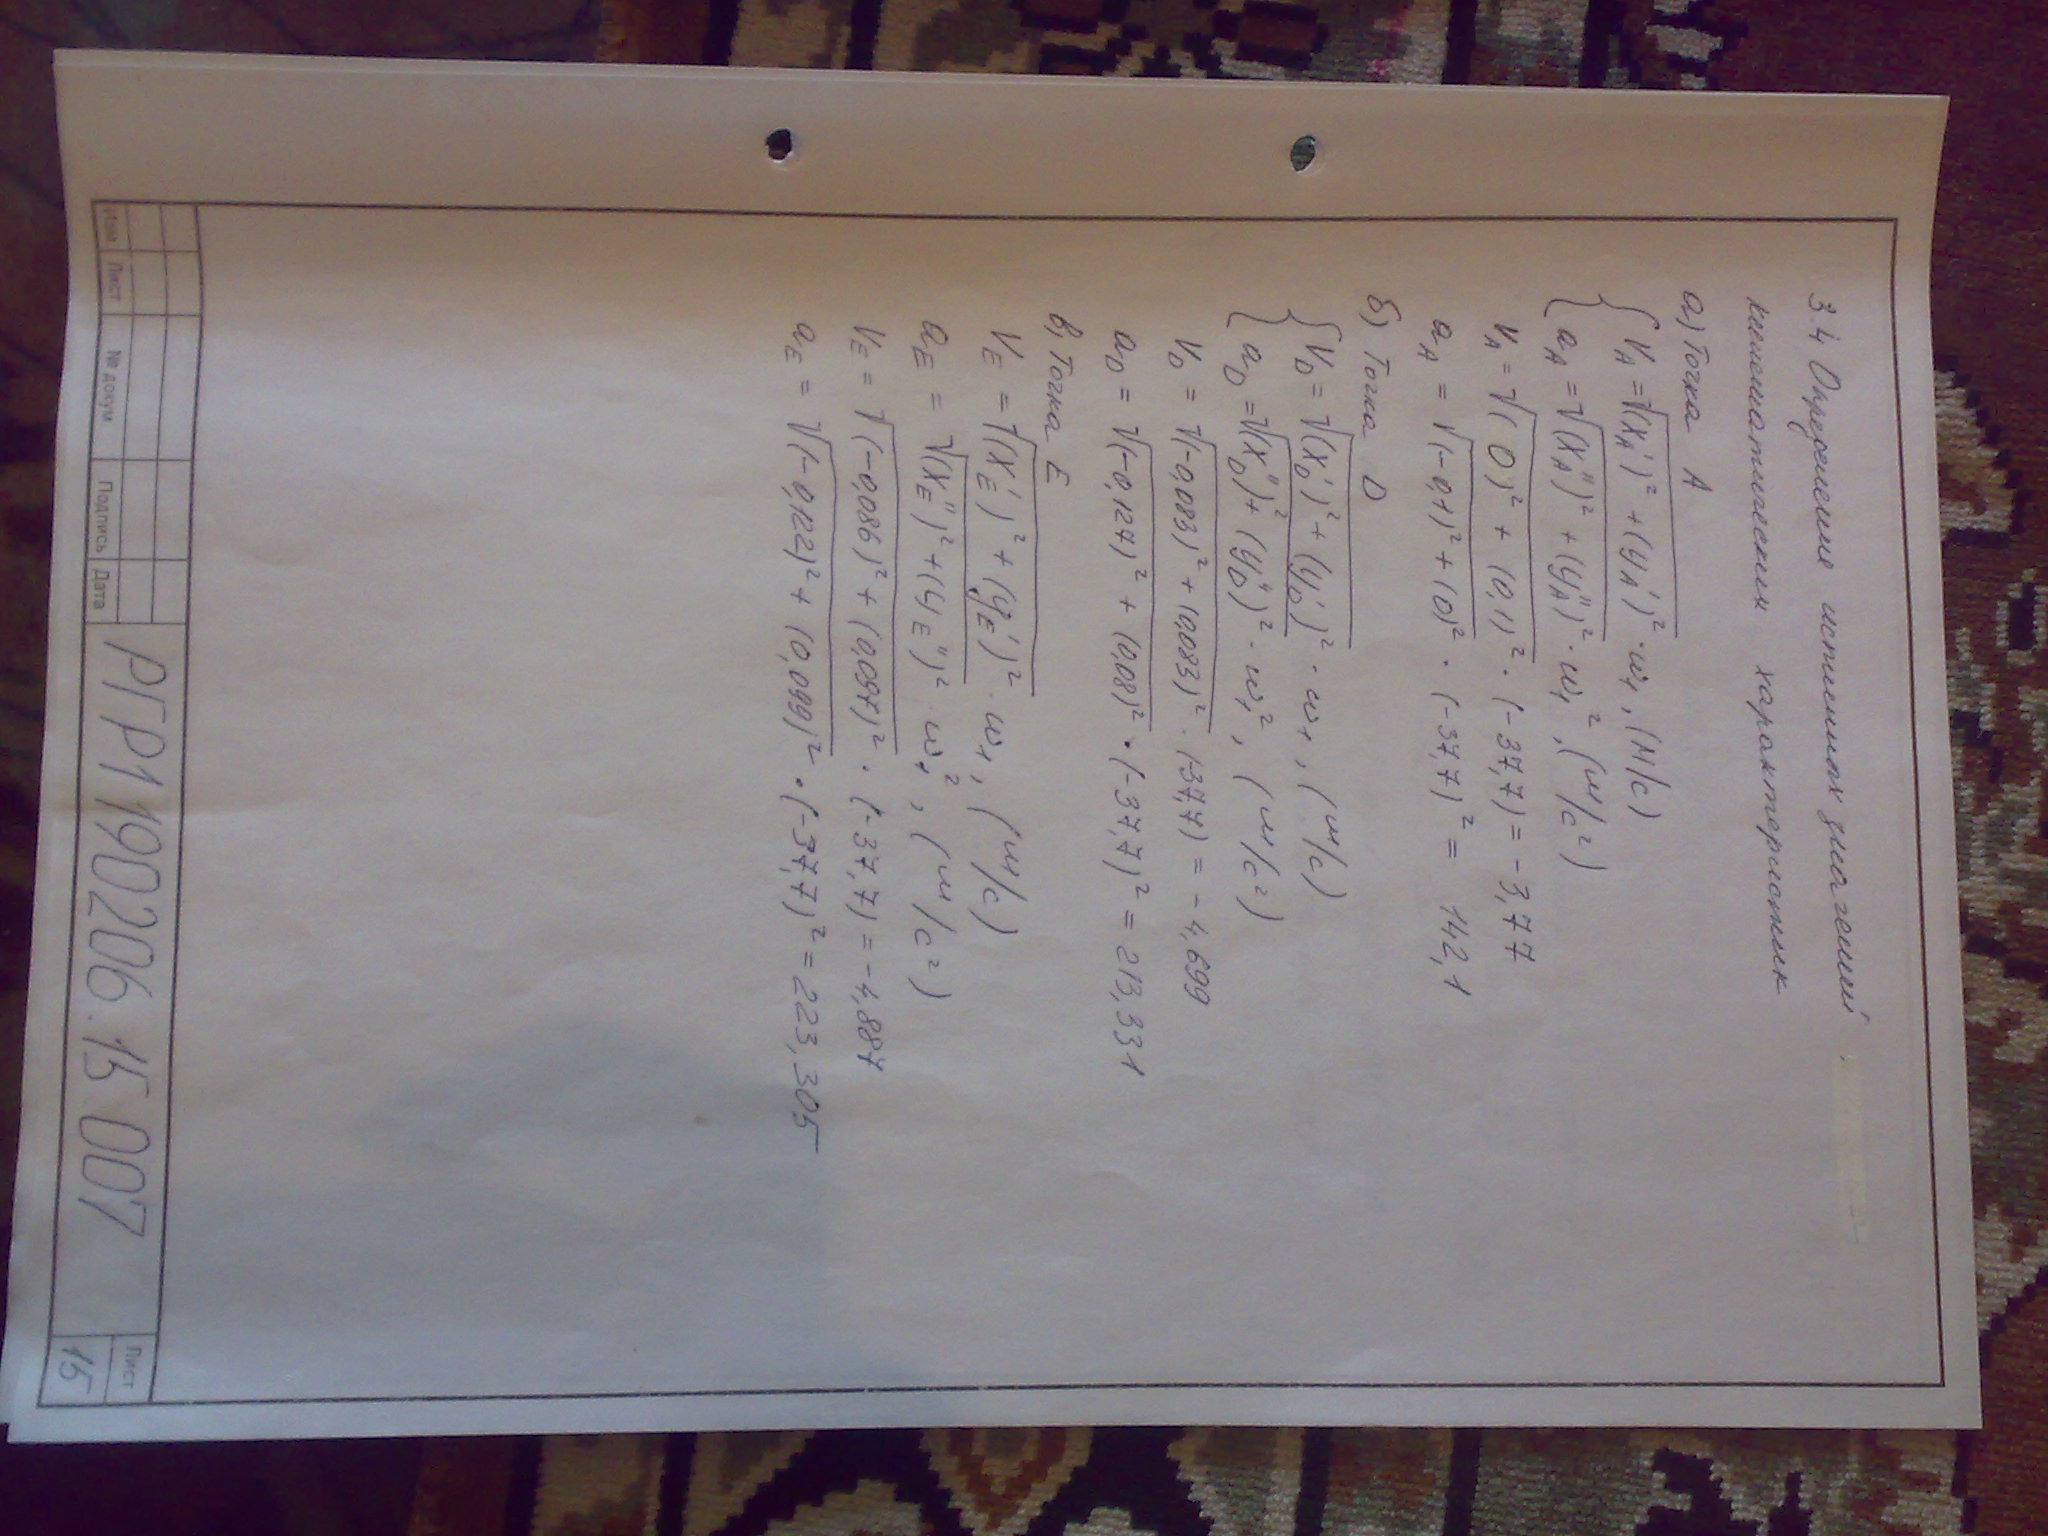 3.4 Определение истинных значений
кинематических характеристик
а) Точка A
{ V_A = √((X_A')² + (y_A')²) · ω₁, (м/с)
{ a_A = √((X_A'')² + (y_A'')²) · ω₁², (м/с²)
V_A = √((0)² + (0,1)²) · (-37,7) = -3,77
a_A = √((-0,1)² + (0)²) · (-37,7)² = 142,1
б) Точка D
{ V_D = √((X_D')² + (y_D')²) · ω₁, (м/с)
{ a_D = √((X_D'')² + (y_D'')²) · ω₁², (м/с²)
V_D = √((-0,093)² + (0,083)²) · (-37,7) = -4,699
a_D = √((-0,127)² + (0,08)²) · (-37,7)² = 213,331
в) Точка E
V_E = √((X_E')² + (y_E')²) · ω₁, (м/с)
a_E = √((X_E'')² + (y_E'')²) · ω₁², (м/с²)
V_E = √((-0,086)² + (0,097)²) · (-37,7) = -4,887
a_E = √((-0,122)² + (0,099)²) · (-37,7)² = 223,305
Изм Лист № докум Подпись Дата
РГР1 190206.15.007
Лист
15